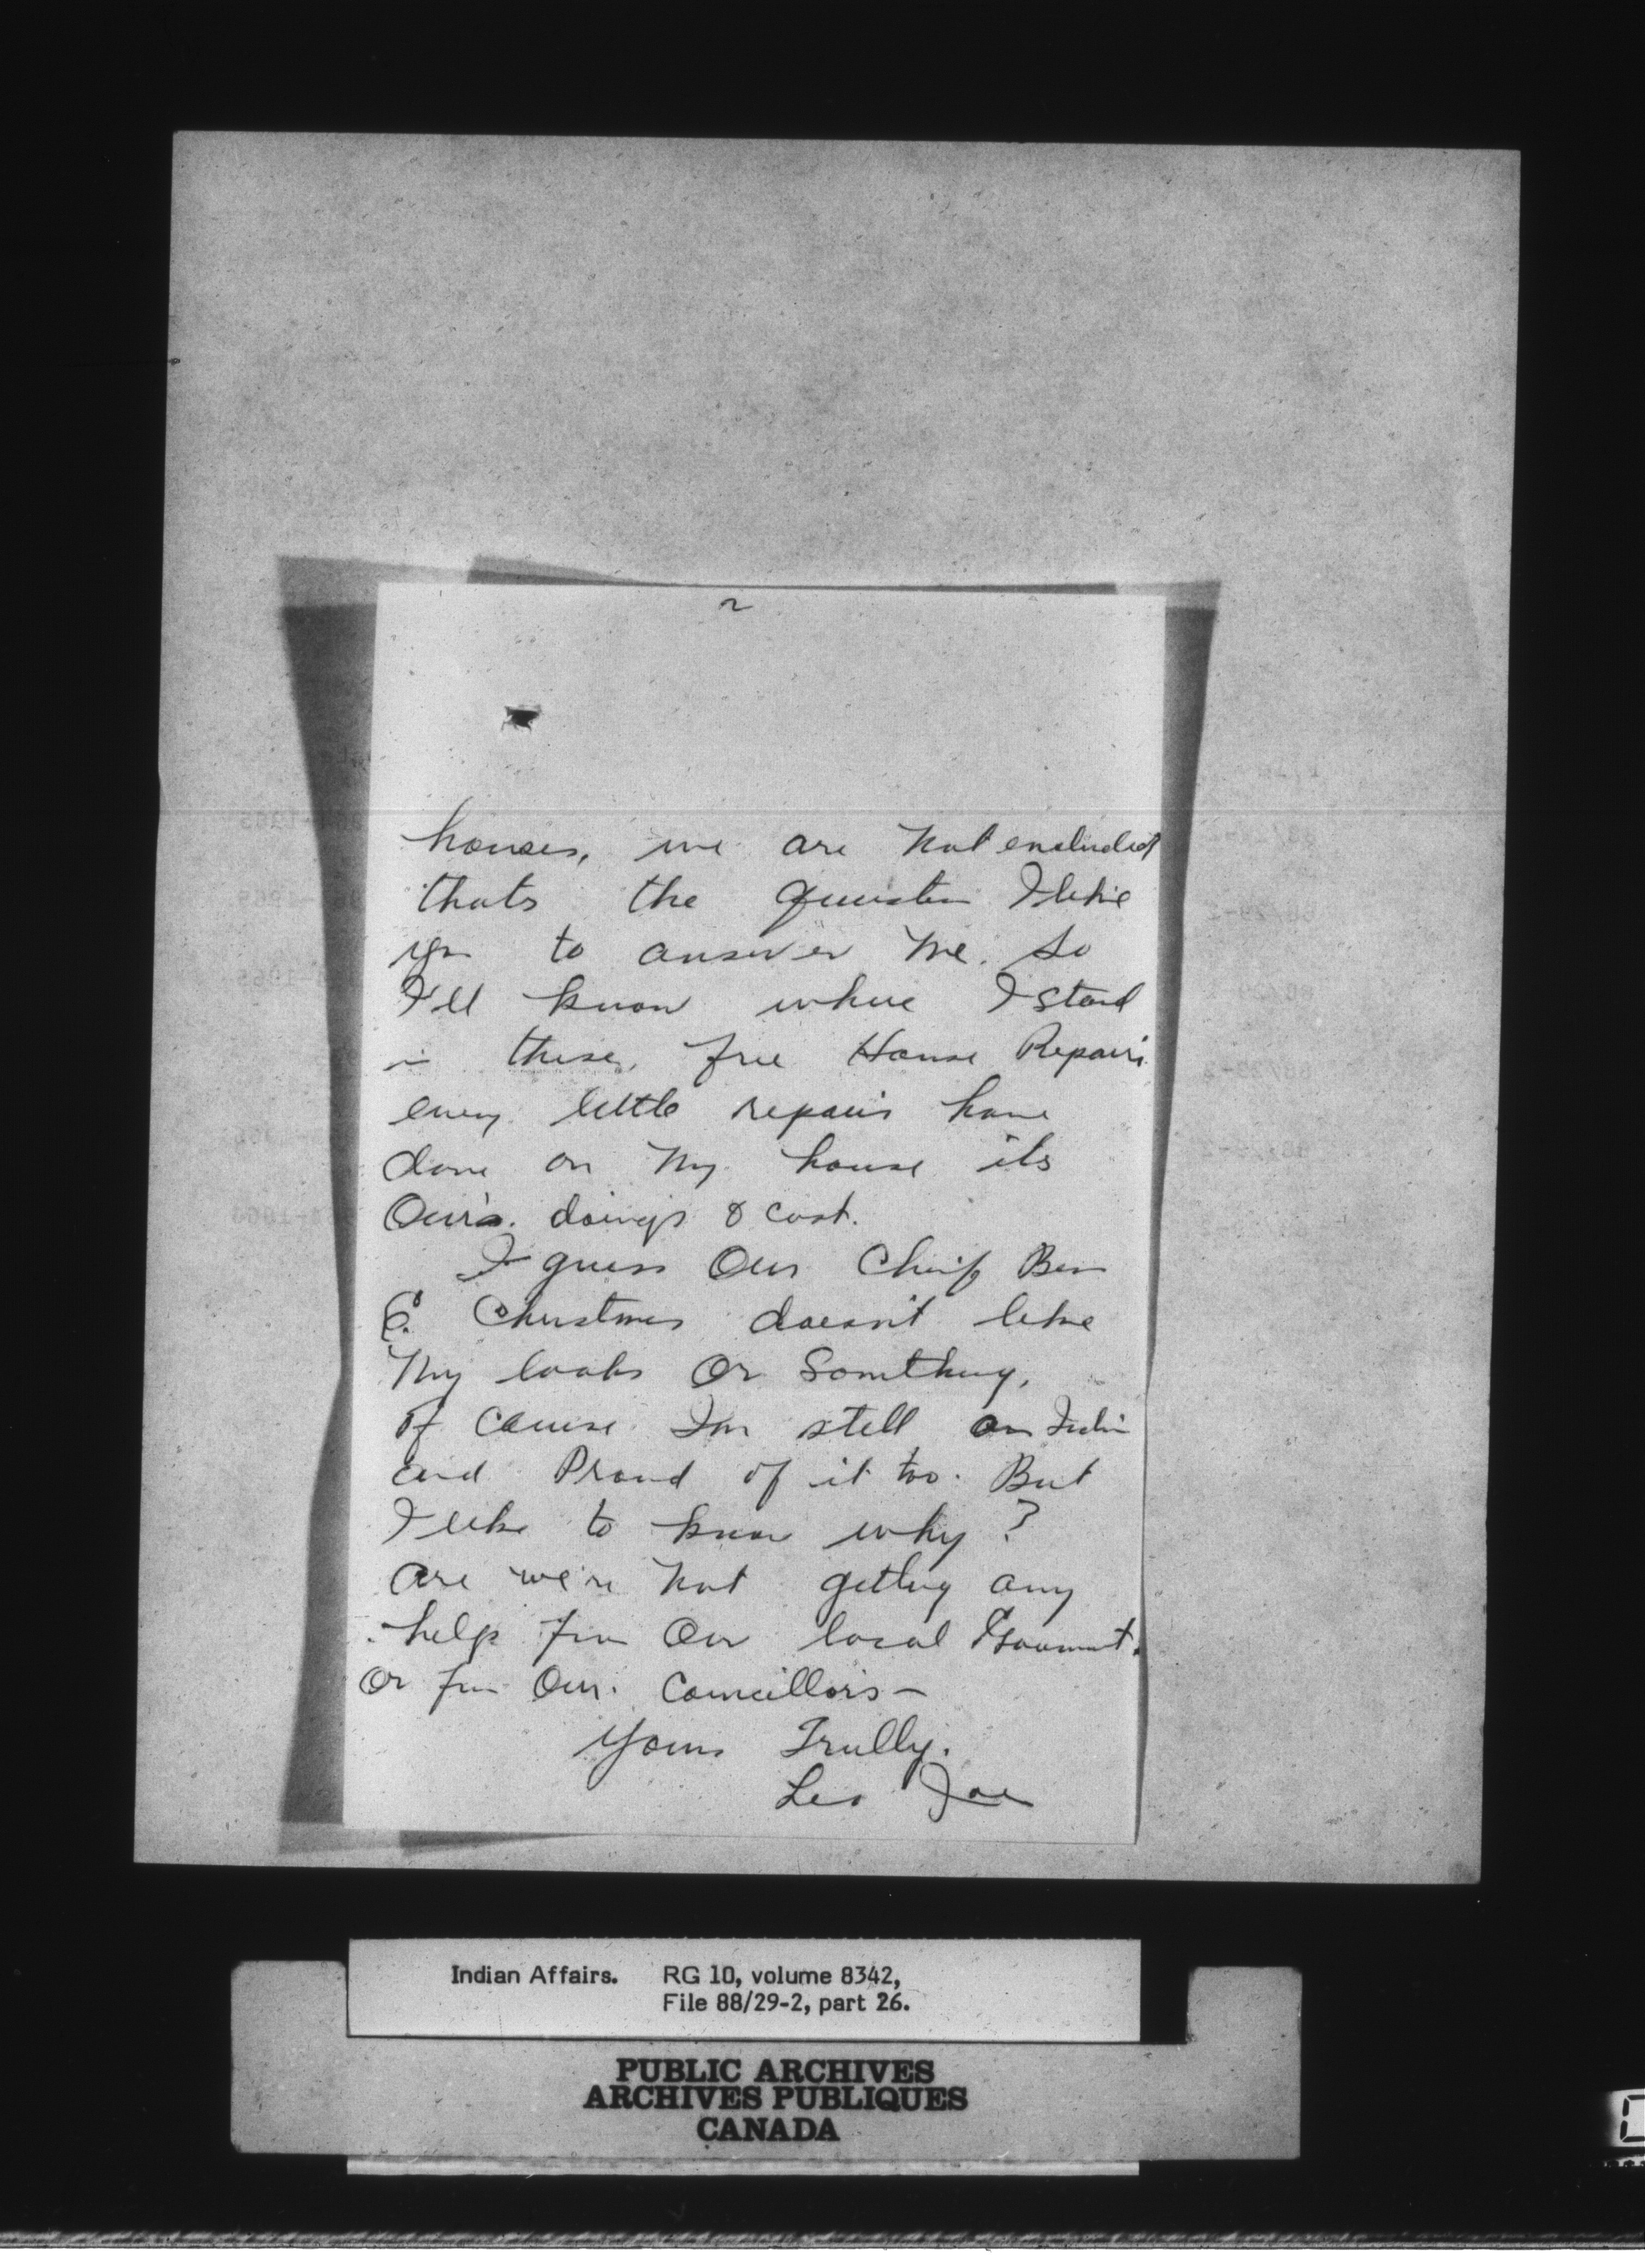 2
houses, we are not encluded
thats the queustion I like
you to answer me. So
I'll know where I stand
in these, free House Repairs.
every little repairs have
done on my house its
Our's. doings & cost.
I guess Our Chief Ben
C. Christmas doesn't like
My looks Or Somthing,
of Couise I'm still an Indin
and Proud of it too. But
I like to know why?
are we're not getting any
help from Our local
Or from Our. Councillors—
Yours Trully.
Leo Joe
Indian Affairs. RG 10, volume 8342,
File 88/29-2, part 26.
PUBLIC ARCHIVES
ARCHIVES PUBLIQUES
CANADA